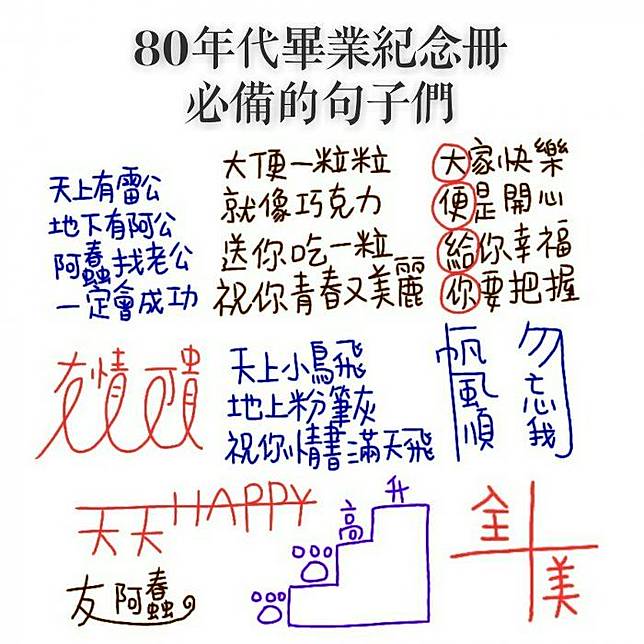 80年代畢業紀念冊
必備的句子們
天上有雷公
地下有阿公
阿蠢找老公
一定會成功
大便一粒粒
就像巧克力
送你吃一粒
祝你青春又美麗
大家快樂
便是開心
給你幸福
你要把握
友情可貴
天上小鳥飛
地上粉筆灰
祝你情書滿天飛
帆風順
勿忘我
天天HAPPY
友 阿蠢
高
升
全
美